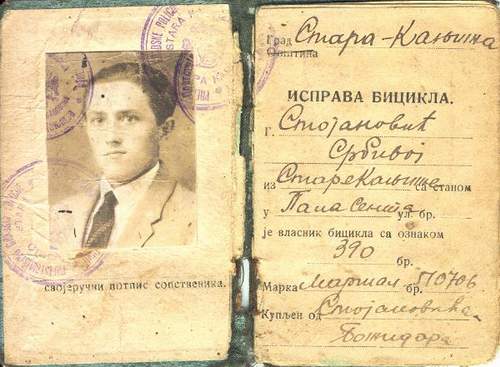 својеручни потпис сопственика.
Град Стара-Кањижа
Општина
ИСПРАВА БИЦИКЛА.
Г. Стојановић
Србивој
из Старе Кањиже са станом
у Папа ул. бр.
је власник бицикла са ознаком
390 бр.
Марка Маршал бр.
Купљен од Стојановића
Божидара